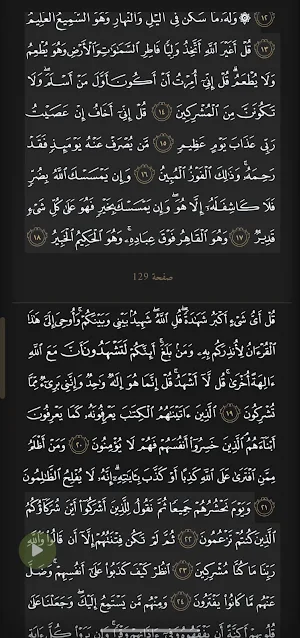 ١٢ ۞ وَلَهُۥ مَا سَكَنَ فِى ٱلَّيْلِ وَٱلنَّهَارِ وَهُوَ ٱلسَّمِيعُ ٱلْعَلِيمُ
١٣ قُلْ أَغَيْرَ ٱللَّهِ أَتَّخِذُ وَلِيًّا فَاطِرِ ٱلسَّمَـٰوَٰتِ وَٱلْأَرْضِ وَهُوَ يُطْعِمُ
وَلَا يُطْعَمُ ۗ قُلْ إِنِّىٓ أُمِرْتُ أَنْ أَكُونَ أَوَّلَ مَنْ أَسْلَمَ ۖ وَلَا
تَكُونَنَّ مِنَ ٱلْمُشْرِكِينَ ١٤ قُلْ إِنِّىٓ أَخَافُ إِنْ عَصَيْتُ
رَبِّى عَذَابَ يَوْمٍ عَظِيمٍ ١٥ مَّن يُصْرَفْ عَنْهُ يَوْمَئِذٍ فَقَدْ
رَحِمَهُۥ ۚ وَذَٰلِكَ ٱلْفَوْزُ ٱلْمُبِينُ ١٦ وَإِن يَمْسَسْكَ ٱللَّهُ بِضُرٍّ
فَلَا كَاشِفَ لَهُۥٓ إِلَّا هُوَ ۖ وَإِن يَمْسَسْكَ بِخَيْرٍ فَهُوَ عَلَىٰ كُلِّ شَىْءٍ
قَدِيرٌ ١٧ وَهُوَ ٱلْقَاهِرُ فَوْقَ عِبَادِهِۦ ۚ وَهُوَ ٱلْحَكِيمُ ٱلْخَبِيرُ ١٨
صفحة 129
قُلْ أَىُّ شَىْءٍ أَكْبَرُ شَهَـٰدَةً ۖ قُلِ ٱللَّهُ ۖ شَهِيدٌۢ بَيْنِى وَبَيْنَكُمْ ۚ وَأُوحِىَ إِلَىَّ هَـٰذَا
ٱلْقُرْءَانُ لِأُنذِرَكُم بِهِۦ وَمَنۢ بَلَغَ ۚ أَئِنَّكُمْ لَتَشْهَدُونَ أَنَّ مَعَ ٱللَّهِ
ءَالِهَةً أُخْرَىٰ ۚ قُل لَّآ أَشْهَدُ ۚ قُلْ إِنَّمَا هُوَ إِلَـٰهٌ وَٰحِدٌ وَإِنَّنِى بَرِىٓءٌ مِّمَّا
تُشْرِكُونَ ١٩ ٱلَّذِينَ ءَاتَيْنَـٰهُمُ ٱلْكِتَـٰبَ يَعْرِفُونَهُۥ كَمَا يَعْرِفُونَ
أَبْنَآءَهُمُ ۘ ٱلَّذِينَ خَسِرُوٓا۟ أَنفُسَهُمْ فَهُمْ لَا يُؤْمِنُونَ ٢٠ وَمَنْ أَظْلَمُ
مِمَّنِ ٱفْتَرَىٰ عَلَى ٱللَّهِ كَذِبًا أَوْ كَذَّبَ بِـَٔايَـٰتِهِۦٓ ۗ إِنَّهُۥ لَا يُفْلِحُ ٱلظَّـٰلِمُونَ
٢١ وَيَوْمَ نَحْشُرُهُمْ جَمِيعًا ثُمَّ نَقُولُ لِلَّذِينَ أَشْرَكُوٓا۟ أَيْنَ شُرَكَآؤُكُمُ
ٱلَّذِينَ كُنتُمْ تَزْعُمُونَ ٢٢ ثُمَّ لَمْ تَكُن فِتْنَتُهُمْ إِلَّآ أَن قَالُوا۟ وَٱللَّهِ
رَبِّنَا مَا كُنَّا مُشْرِكِينَ ٢٣ ٱنظُرْ كَيْفَ كَذَبُوا۟ عَلَىٰٓ أَنفُسِهِمْ ۚ وَضَلَّ
عَنْهُم مَّا كَانُوا۟ يَفْتَرُونَ ٢٤ وَمِنْهُم مَّن يَسْتَمِعُ إِلَيْكَ ۖ وَجَعَلْنَا عَلَىٰ
قُلُوبِهِمْ أَكِنَّةً أَن يَفْقَهُوهُ وَفِىٓ ءَاذَانِهِمْ وَقْرًا ۚ وَإِن يَرَوْا۟ كُلَّ ءَايَةٍ